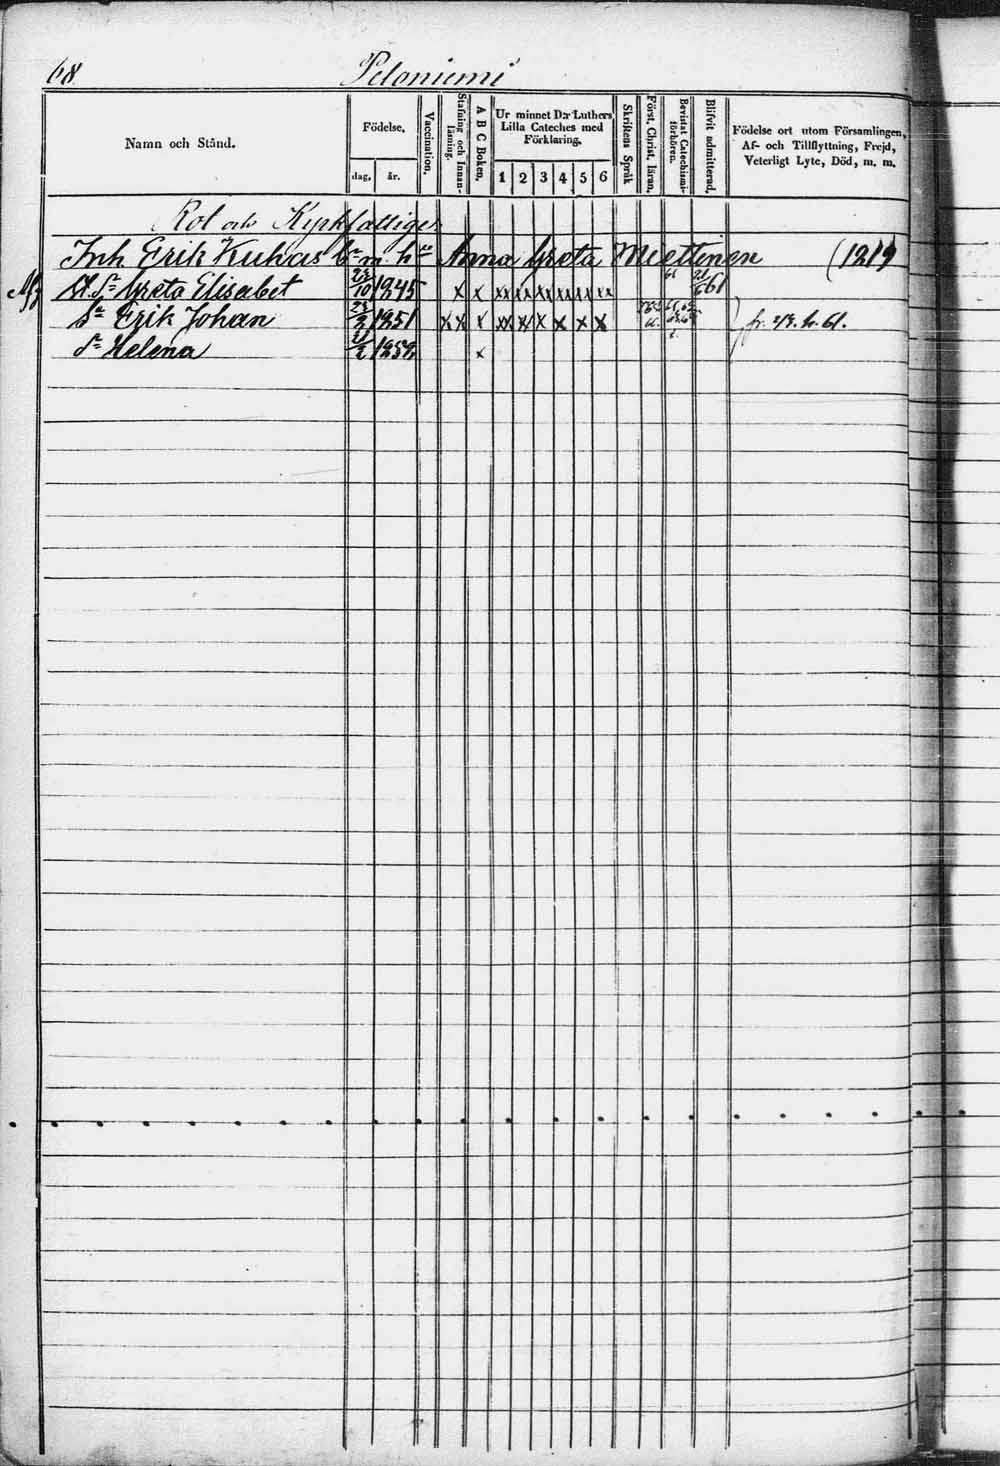 68. Peloniemi
Namn och Stånd.
Födelse,
dag, år.
Vaccination,
Stafning och Innanläsning.
A B C Boken,
Ur minnet D:r Luthers Lilla Cateches med Förklaring,
1 2 3 4 5 6
Skriftens Språk
Först. Christ. läran,
Bevistat Catechismiförhören.
Blifvit admitterad,
Födelse ort utom Församlingen, Af- och Tillflyttning, Frejd, Veterligt Lyte, Död, m. m.
Rol och Kyrkfattiger
Inh Erik Kuhas b:n m. h:u Anna Greta Miettinen (1219
St. D:r Greta Elisabet 23/10 1845 x x xx xx xx xx xx xx 61 61
S:n Erik Johan 1851 x x x xx x x x x x
D:r Helena 1858 x
fr. 2/3. h. 61.